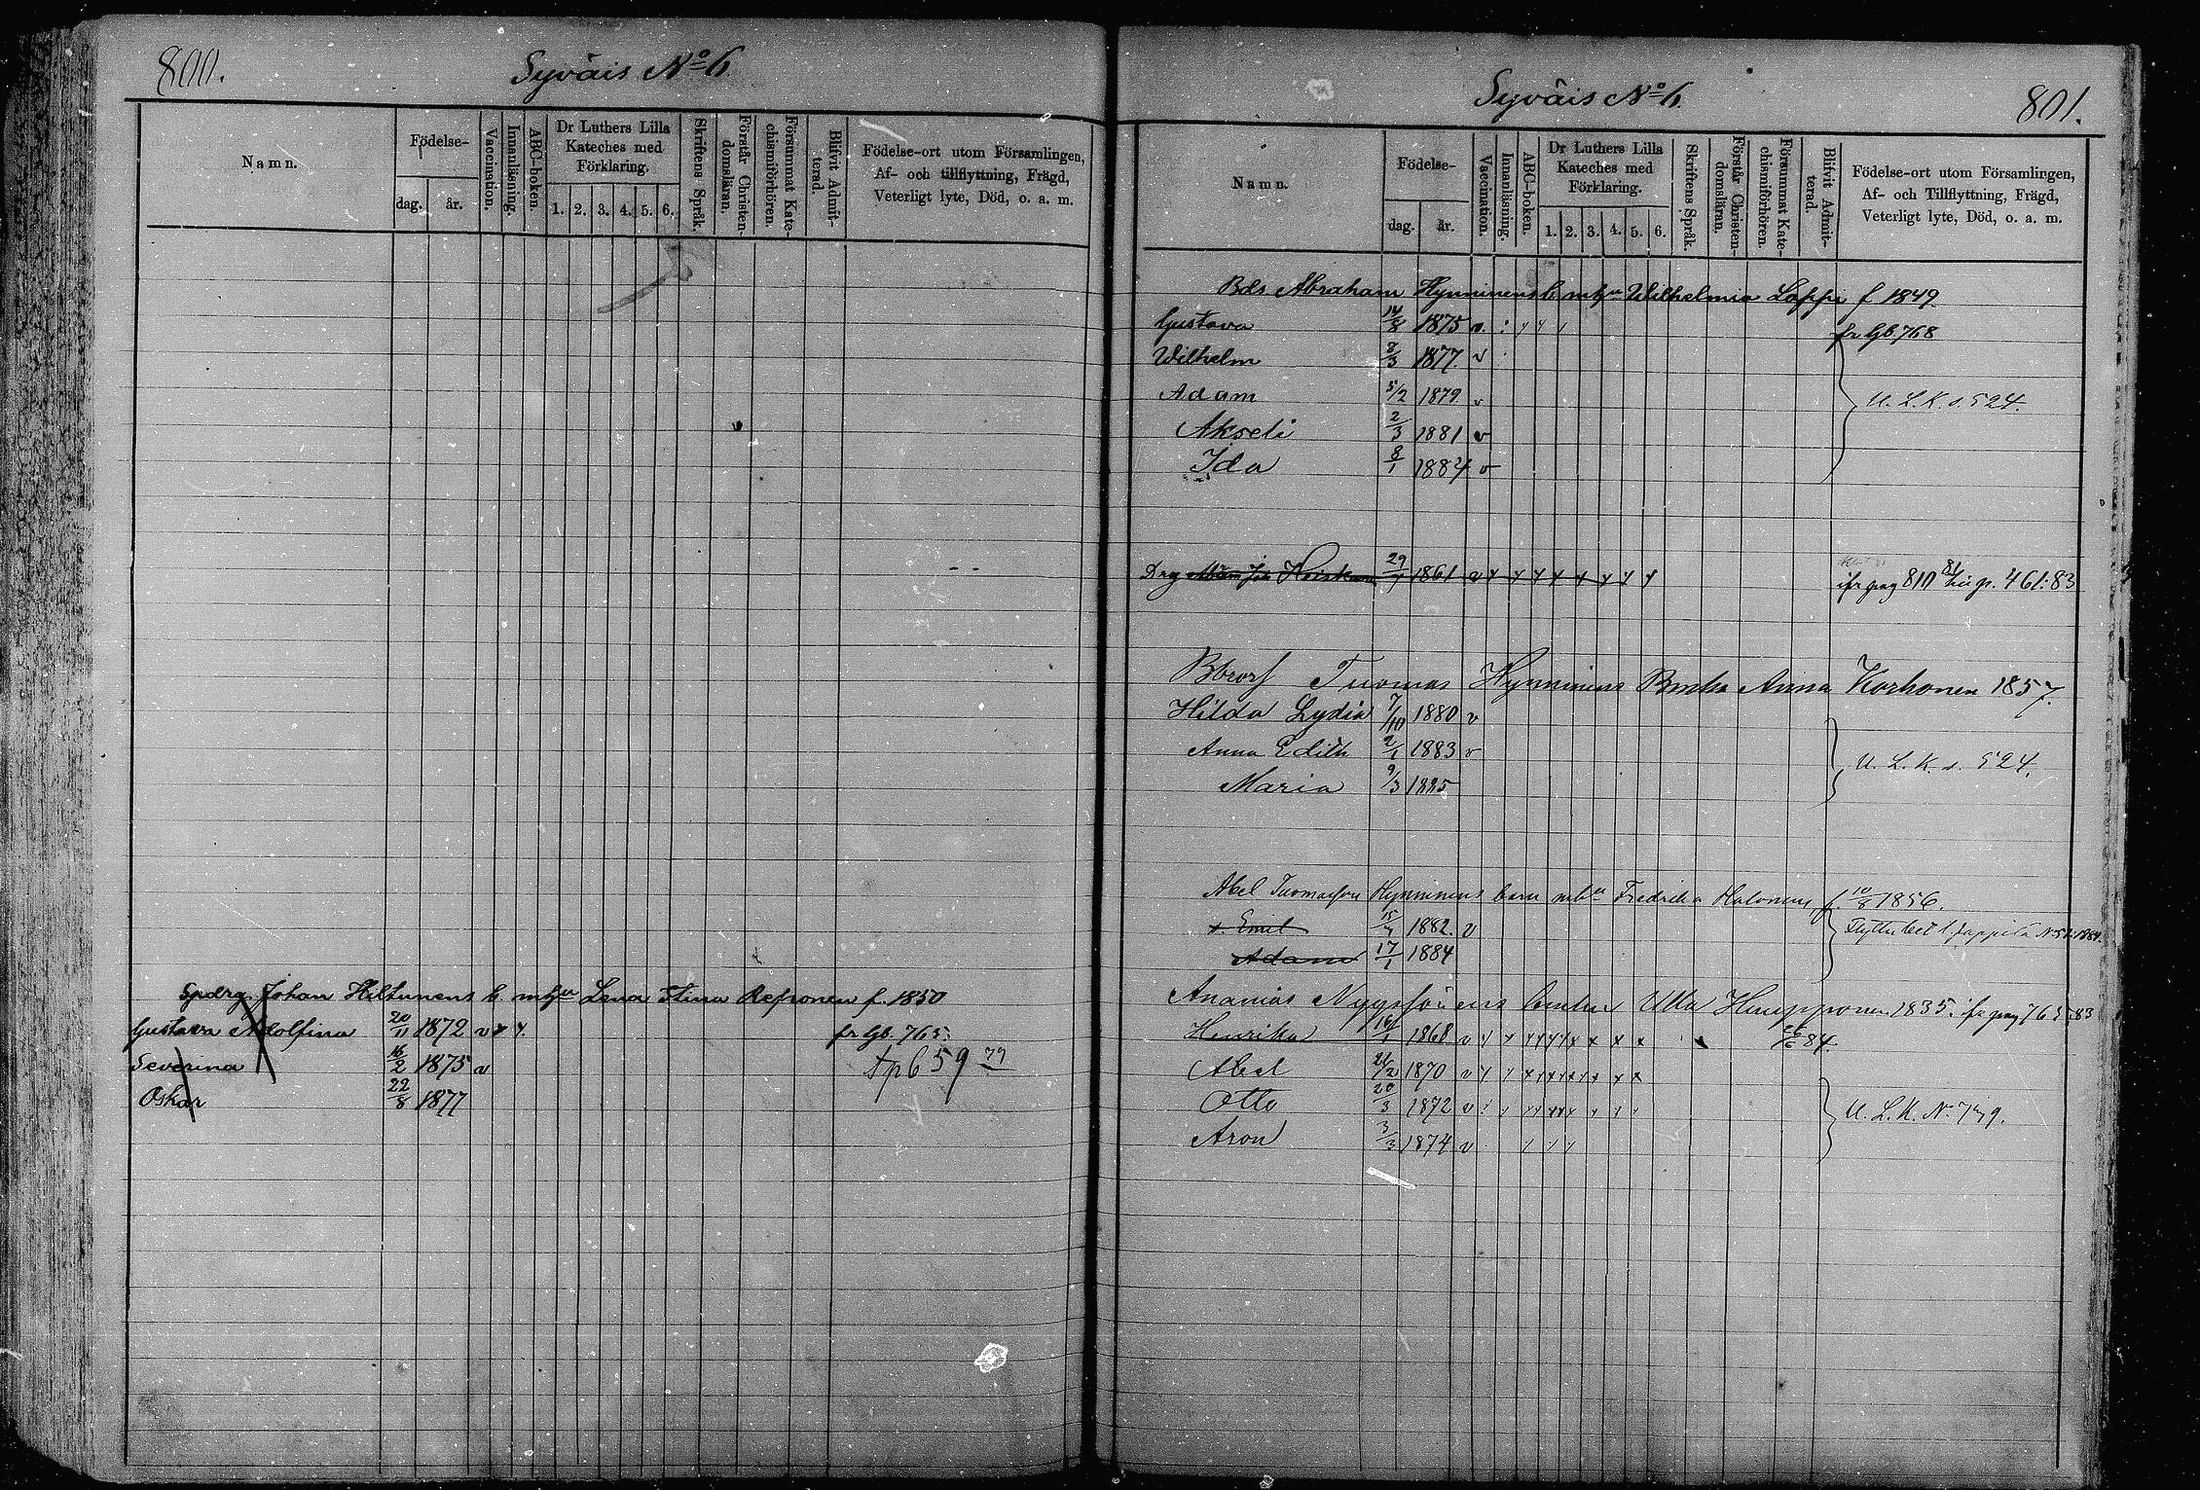 800.
Syväis No 6.
Namn.
Födelse-
dag.
år.
Vaccination.
Innanläsning.
ABC-boken.
Dr Luthers Lilla
Kateches med
Förklaring.
1. 2. 3. 4. 5. 6.
Skriftens Språk.
Förstår Christen-
domsläran.
Försummat Kate-
chismiförhören.
Blifvit Admit-
terad.
Födelse-ort utom Församlingen,
Af- och tillflyttning, Frägd,
Veterligt lyte, Död, o. a. m.
Spdrg. Johan Hiltunens b. m hu Lena Stina Repronen f. 1850
Gustava Adolfina 20/11 1872 v x x. fr Gb. 765.
Severina 16/2 1875 v tp 659 79
Oskar 22/8 1877
Syväis No 6.
801.
Namn.
Födelse-
dag.
år.
Vaccination.
Innanläsning.
ABC-boken.
Dr Luthers Lilla
Kateches med
Förklaring.
1. 2. 3. 4. 5. 6.
Skriftens Språk.
Förstår Christen-
domsläran.
Försummat Kate-
chismiförhören.
Blifvit Admit-
terad.
Födelse-ort utom Församlingen,
Af- och Tillflyttning, Frägd,
Veterligt lyte, Död, o. a. m.
Bds. Abraham Hynninens b. m hu Wilhelmia Lappi f 1849.
Gustava 14/8 1875 v fr Gb 768
Wilhelm 8/3 1877. v
Adam 5/2 1879. v U. L. K. s. 524.
Akseli 2/3 1881 v
Ida 8/1 1884 v
Drg Heiskanen 29/7 1861 v x x x x x x x x ifr pag 810 81 p. 461:83
Tuomas Hynninens Anna Korhonen 1857.
Hilda Lydia 7/10 1880 v
Anna Edith 2/1 1883 v U. L. K. s. 524.
Maria 9/3 1885
Abel Tuomasson Hynninens barn m hu Fredrika Halonens f. 10/8 1856.
x. Emil 15/7 1882. v
Adam 17/1 1884
Ananias Nyyssönens Ulla Haupponen 1835. ifr pag 765:83
Henrika 16/1 1868 v x x x x x x x x x 26/6 84.
Abel 26/2 1870 v x x x x x x x x x
Otto 20/3 1872 v x x x x x x x U. L. K. No 7
Aron 3/3 1874 v